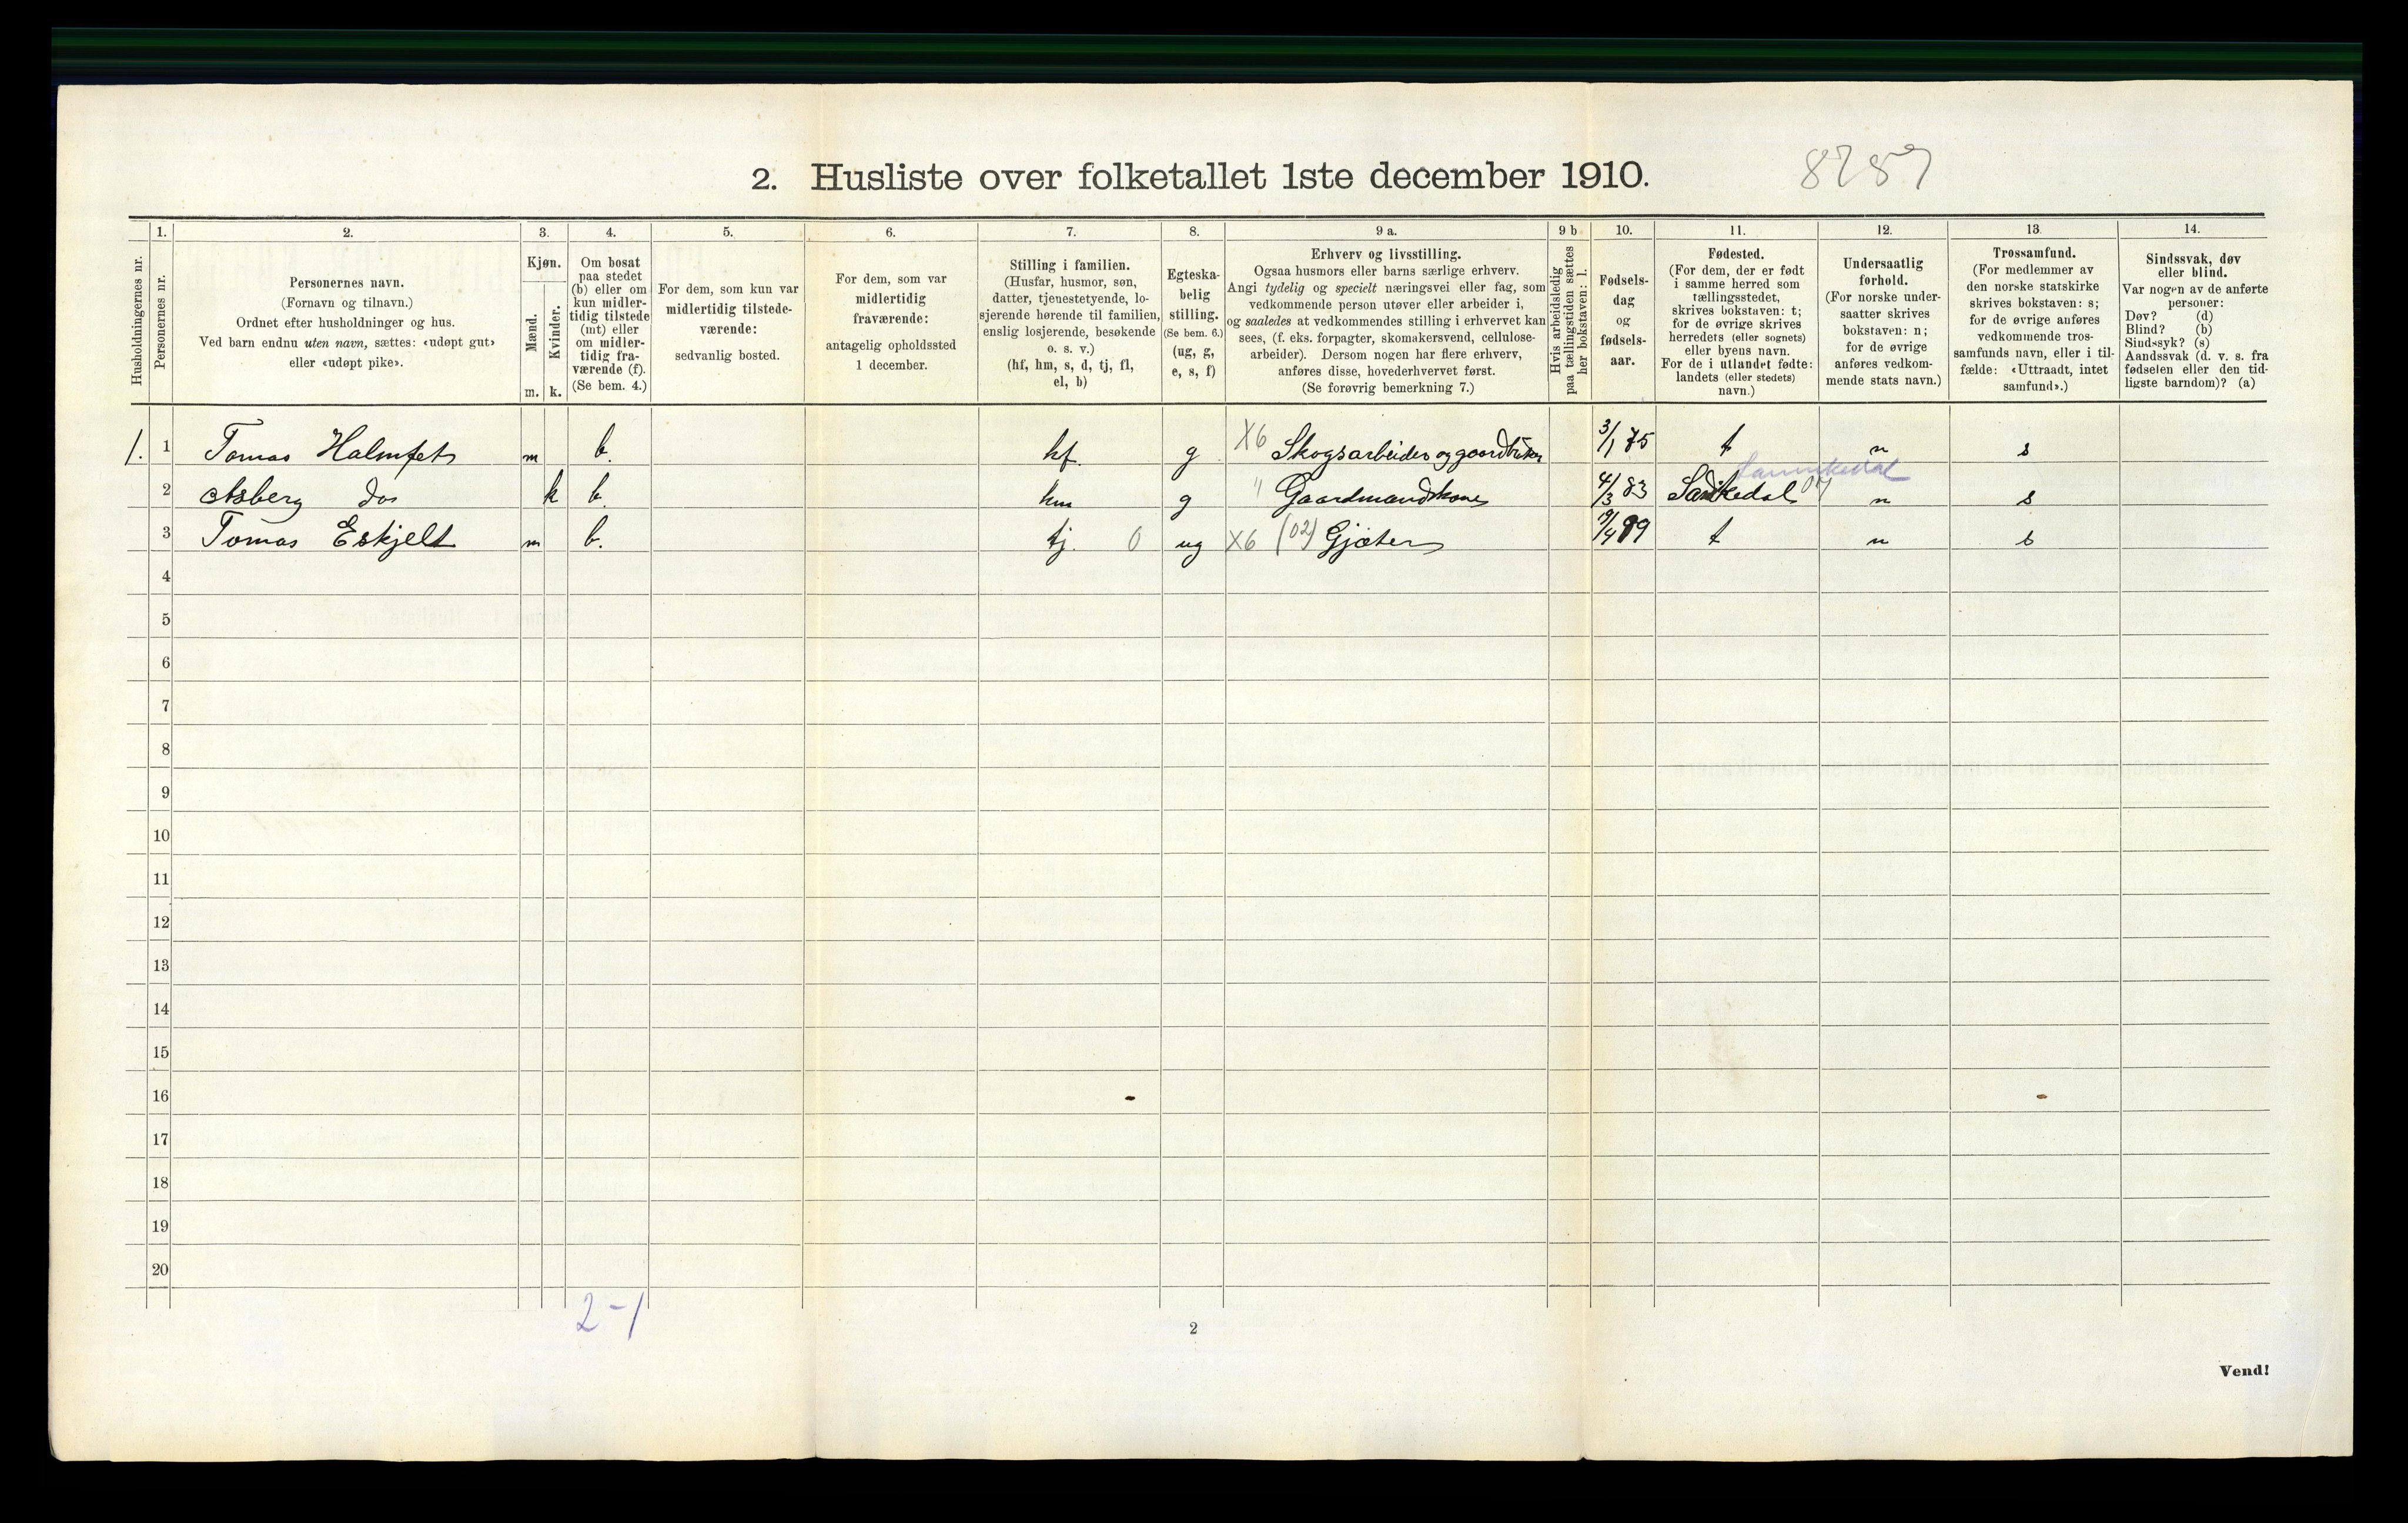 2. Husliste over folketallet 1ste december 1910.
8787
Husholdningernes nr.
1.
Personernes nr.
2.
Personernes navn.
(Fornavn og tilnavn.)
Ordnet efter husholdninger og hus.
Ved barn endnu uten navn, sættes: «udøpt gut»
eller «udøpt pike».
3.
Kjøn.
Mænd.
Kvinder.
m. k.
4.
Om bosat
paa stedet
(b) eller om
kun midler-
tidig tilstede
(mt) eller
om midler-
tidig fra-
værende (f).
(Se bem. 4.)
5.
For dem, som kun var
midlertidig tilstede-
værende:
sedvanlig bosted.
6.
For dem, som var
midlertidig
fraværende:
antagelig opholdssted
1 december.
7.
Stilling i familien.
(Husfar, husmor, søn,
datter, tjenestetyende, lo-
sjerende hørende til familien,
enslig losjerende, besøkende
o. s. v.)
(hf, hm, s, d, tj, fl,
el, b)
8.
Egteska-
belig
stilling.
(Se bem. 6.)
(ug, g,
e, s, f)
9 a.
Erhverv og livsstilling.
Ogsaa husmors eller barns særlige erhverv.
Angi tydelig og specielt næringsvei eller fag, som
vedkommende person utøver eller arbeider i,
og saaledes at vedkommendes stilling i erhvervet kan
sees, (f. eks. forpagter, skomakersvend, cellulose-
arbeider). Dersom nogen har flere erhverv,
anføres disse, hovederhvervet først.
(Se forøvrig bemerkning 7.)
9 b
Hvis arbeidsledig
paa tællingstiden sættes
her bokstaven: l.
10.
Fødsels-
dag
og
fødsels-
aar.
11.
Fødested.
(For dem, der er født
i samme herred som
tællingsstedet,
skrives bokstaven: t;
for de øvrige skrives
herredets (eller sognets)
eller byens navn.
For de i utlandet fødte:
landets (eller stedets)
navn.)
12.
Undersaatlig
forhold.
(For norske under-
saatter skrives
bokstaven: n;
for de øvrige
anføres vedkom-
mende stats navn.)
13.
Trossamfund.
(For medlemmer av
den norske statskirke
skrives bokstaven: s;
for de øvrige anføres
vedkommende tros-
samfunds navn, eller i til-
fælde: «Uttraadt, intet
samfund».)
14.
Sindssvak, døv
eller blind.
Var nogen av de anførte
personer:
Døv? (d)
Blind? (b)
Sindssyk? (s)
Aandssvak (d. v. s. fra
fødselen eller den tid-
ligste barndom)? (a)
1. 1 Tomas Halmfet m b. hf. g X6 Skogsarbeider og gaardbruker 3/1 75 t n s
Sannikedal
2 Asberg do k b. hm g " Gaardmandskone 4/3 83 Sanikedal 07 n s
3 Tomas Eskjelt m b. tj. 0 ug X6 (02) Gjæter 19/4 99 t n s
4
5
6
7
8
9
10
11
12
13
14
15
16
17
18
19
20
2-1
2
Vend!